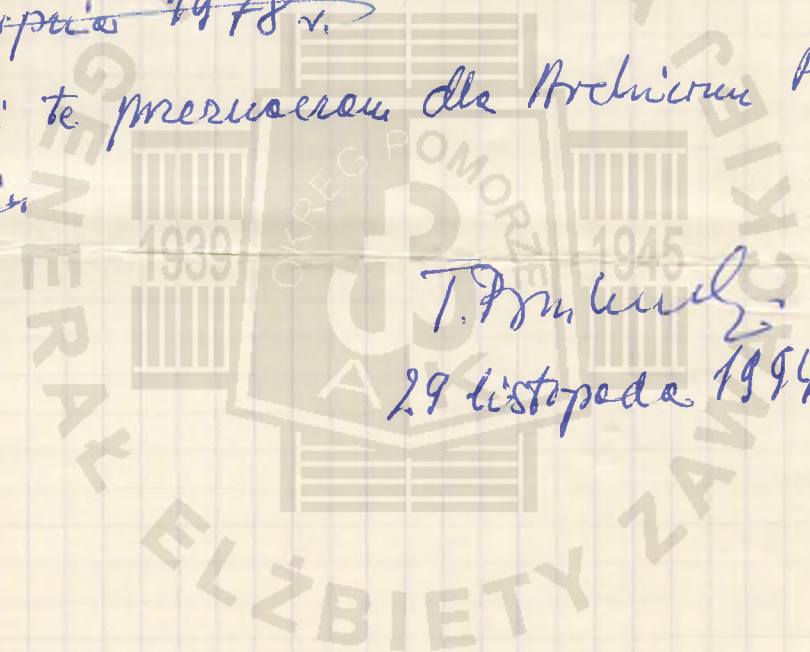 1978 r.
te przeznaczam dla Archiwum
29 listopada 199
GENERAŁ ELŻBIETY ZAWACKIEJ
OKRĘG POMORZE
1939
1945
AK